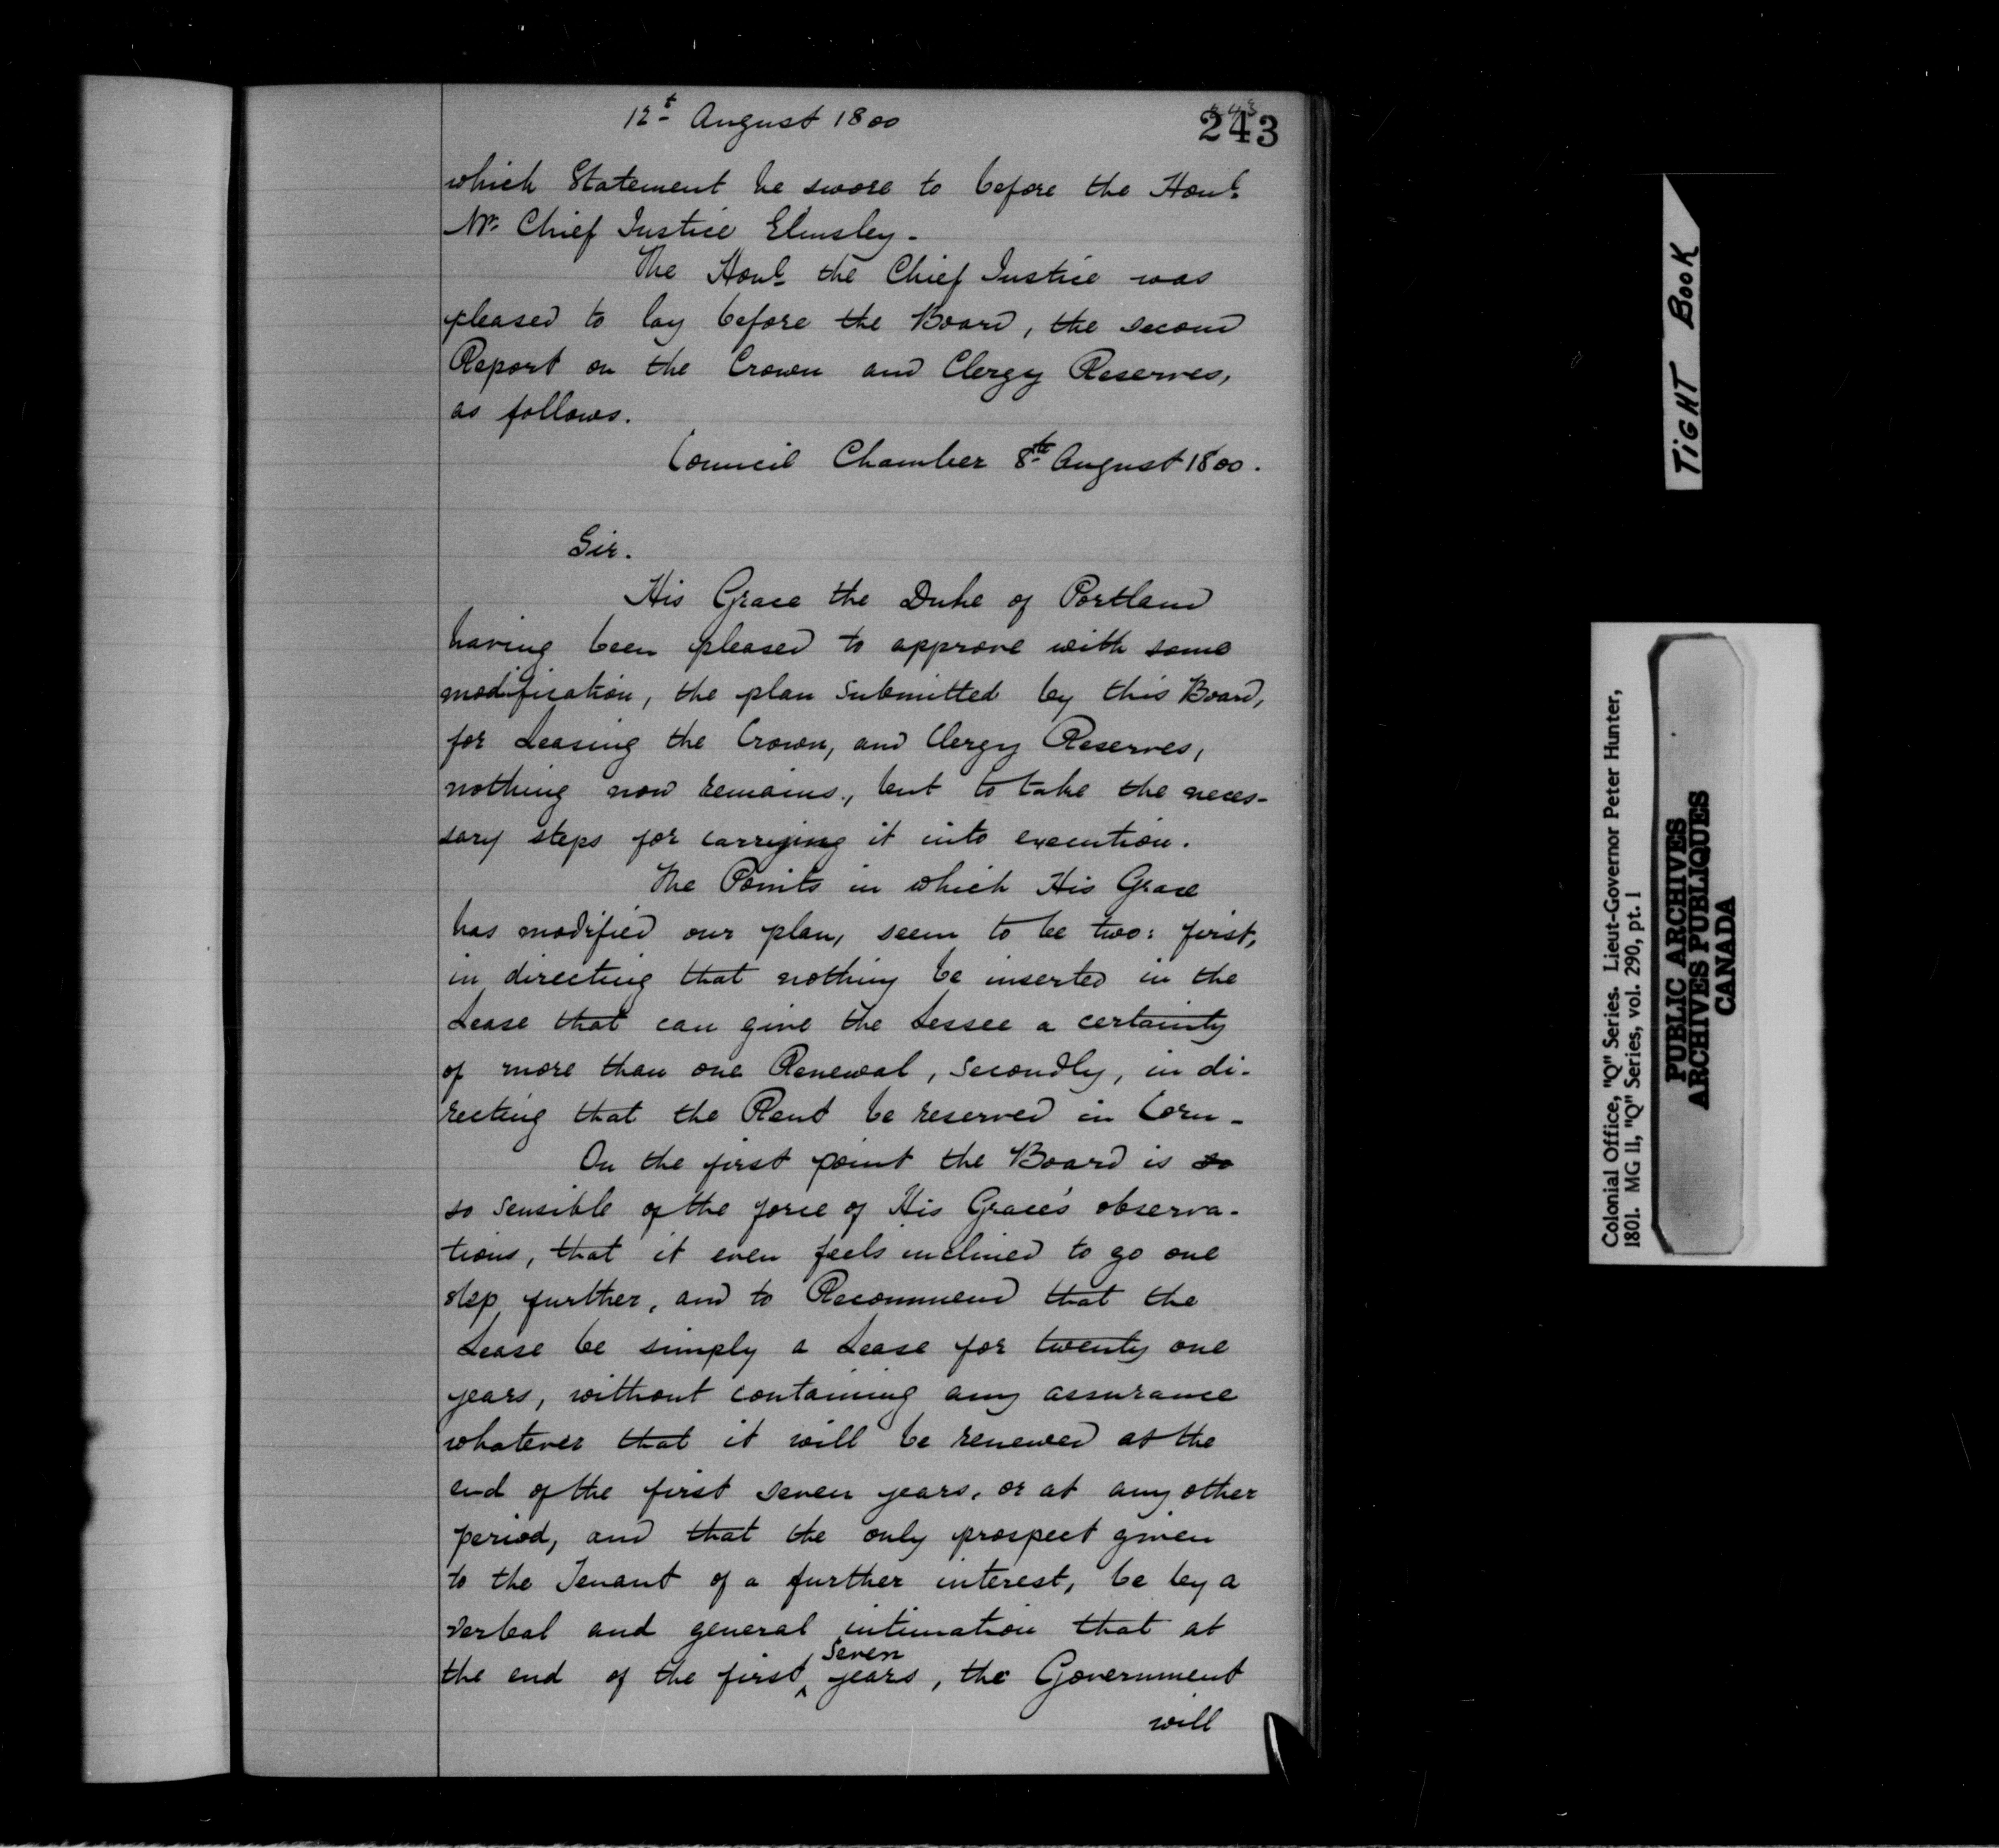 12t August 1800
243
243
which Statement he swore to before the Honl
Mr Chief Justice Elmsley.
The Honl the Chief Justice was
pleased to lay before the Board, the second
Report on the Crown and Clergy Reserves,
as follows.
Council Chamber 8th August 1800.
Sir.
His Grace the Duke of Portland
having been pleased to approve with some
modification, the plan submitted by this Board,
for Leasing the Crown, and Clergy Reserves,
nothing now remains, but to take the neces-
sary steps for carrying it into execution.
The Points in which His Grace
has modified our plan, seem to be two: first,
in directing that nothing be inserted in the
Lease that can give the Lessee a certainty
of more than one Renewal, Secondly, in di-
recting that the Rent be reserved in Corn -
On the first point the Board is so
so sensible of the force of His Grace's observa-
tions, that it even feels inclined to go one
step further, and to Recommend that the
Lease be simply a Lease for twenty one
years, without containing any assurance
whatever that it will be renewed at the
end of the first seven years, or at any other
period, and that the only prospect given
to the Tenant of a further interest, be by a
verbal and general intimation that at
the end of the first seven years, the Government
will
TIGHT BOOK
Colonial Office, "Q" Series. Lieut-Governor Peter Hunter,
1801. MG 11, "Q" Series, vol. 290, pt. 1
PUBLIC ARCHIVES
ARCHIVES PUBLIQUES
CANADA